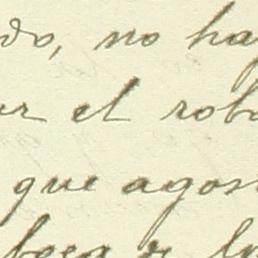 do, no ha
ur el rob
que agos
boca y lo